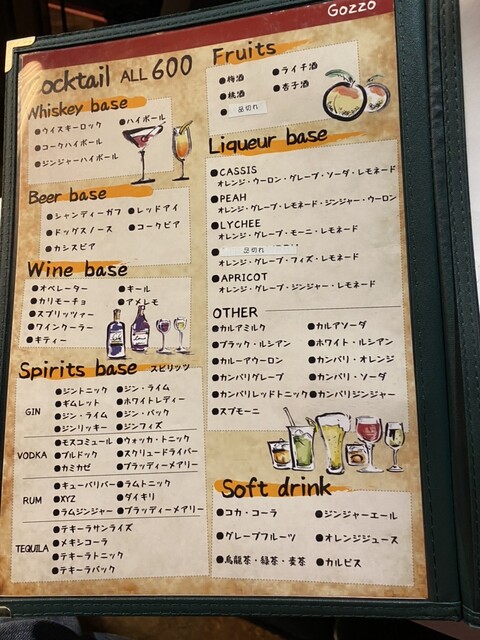 Gozzo
Cocktail ALL 600
Whiskey base
●ウイスキーロック ●ハイボール
●コークハイボール
●ジンジャーハイボール
Beer base
●シャンディーガフ ●レッドアイ
●ドッグスノーズ ●コークビア
●カシスビア
Wine base
●オペレーター ●キール
●カリモーチョ ●アメレモ
●スプリッツァー
●ワインクーラー
●キティー
Spirits base スピリッツ
GIN
●ジントニック ●ジン・ライム
●ギムレット ●ホワイトレディー
●ジン・ライム ●ジン・バック
●ジンリッキー ●ジンフィズ
VODKA
●モスコミュール ●ウォッカ・トニック
●ブルドック ●スクリュードライバー
●カミカゼ ●ブラッディーメアリー
RUM
●キューバリバー ●ラムトニック
●XYZ ●ダイキリ
●ラムジンジャー ●ブラッディーメアリー
TEQUILA
●テキーラサンライズ
●メキシコーラ
●テキーラトニック
●テキーラバック
Fruits
●梅酒 ●ライチ酒
●桃酒 ●杏子酒
● 品切れ
Liqueur base
●CASSIS
オレンジ・ウーロン・グレープ・ソーダ・レモネード
●PEAH
オレンジ・グレープ・レモネード・ジンジャー・ウーロン
●LYCHEE
オレンジ・グレープ・モーニ・レモネード
● 品切れ
オレンジ・グレープ・フィズ・レモネード
●APRICOT
オレンジ・グレープ・ジンジャー・レモネード
OTHER
●カルアミルク ●カルアソーダ
●ブラック・ルシアン ●ホワイト・ルシアン
●カルーアウーロン ●カンパリ・オレンジ
●カンパリグレープ ●カンパリ・ソーダ
●カンパリレッドトニック ●カンパリジンジャー
●スプモーニ
Soft drink
●コカ・コーラ ●ジンジャーエール
●グレープフルーツ ●オレンジジュース
●烏龍茶・緑茶・麦茶 ●カルピス